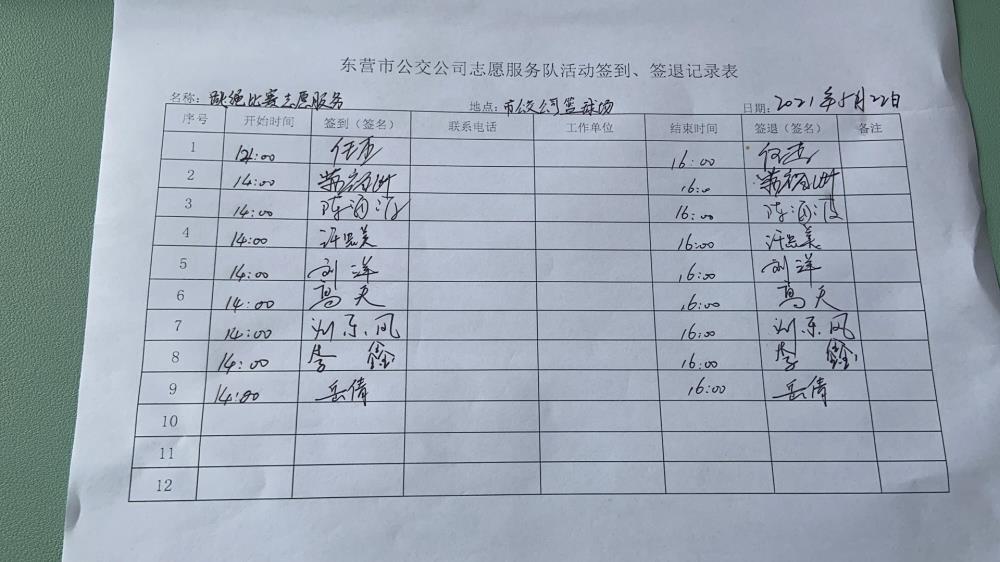 东营市公交公司志愿服务队活动签到、签退记录表
名称：跳绳比赛志愿服务 地点：市公交公司篮球场 日期：2021年5月22日
序号 开始时间 签到（签名） 联系电话 工作单位 结束时间 签退（签名） 备注
1 14:00 任杰 16:00 任杰
2 14:00 16:00
3 14:00 陈酒波 16:00 陈酒波
4 14:00 许思美 16:00 许思美
5 14:00 刘洋 16:00 刘洋
6 14:00 高天 16:00 高天
7 14:00 刘东凤 16:00 刘东凤
8 14:00 李鑫 16:00 李鑫
9 14:00 岳倩 16:00 岳倩
10
11
12